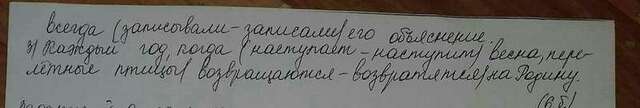 всегда (записывали-записали) его объяснение.
3) Каждый год, когда (наступает-наступит) весна, пере-
лётные птицы (возвращаются-возвратятся) на Родину.
(В.Б.)